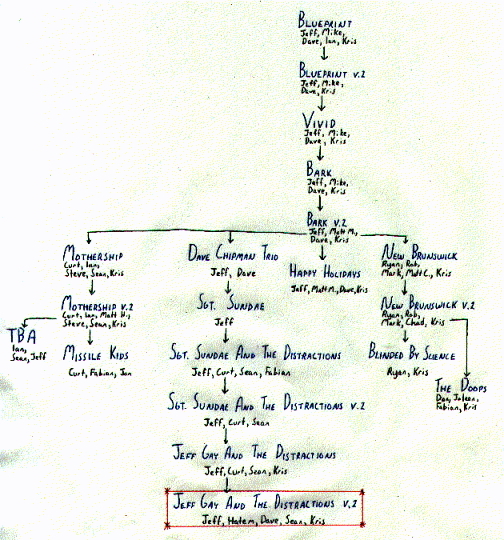 Blueprint
Jeff, Mike,
Dave, Ian, Kris
Blueprint v.2
Jeff, Mike,
Dave, Kris
Vivid
Jeff, Mike,
Dave, Kris
Bark
Jeff, Mike,
Dave, Kris
Bark v.2
Jeff, Matt M.,
Dave, Kris
Mothership
Curt, Ian,
Steve, Sean, Kris
Dave Chipman Trio
Jeff, Dave
Happy Holidays
Jeff, Matt M., Dave, Kris
New Brunswick
Ryan, Rob,
Mark, Matt C., Kris
Mothership v.2
Curt, Ian, Matt H.,
Steve, Sean, Kris
Sgt. Sundae
Jeff
New Brunswick v.2
Ryan, Rob,
Mark, Chad, Kris
TBA
Ian,
Sean, Jeff
Missile Kids
Curt, Fabian, Jon
Sgt. Sundae And The Distractions
Jeff, Curt, Sean, Fabian
Blinded By Science
Ryan, Kris
The Doops
Dan,
Fabian, Kris
Sgt. Sundae And The Distractions v.2
Jeff, Curt, Sean
Jeff Gay And The Distractions
Jeff, Curt, Sean, Kris
Jeff Gay And The Distractions v.2
Jeff, Hatem, Dave, Sean, Kris